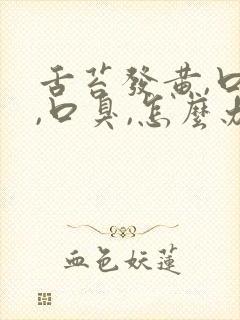 舌苔發黃,口
,口臭,怎麼办
血色妖蓮